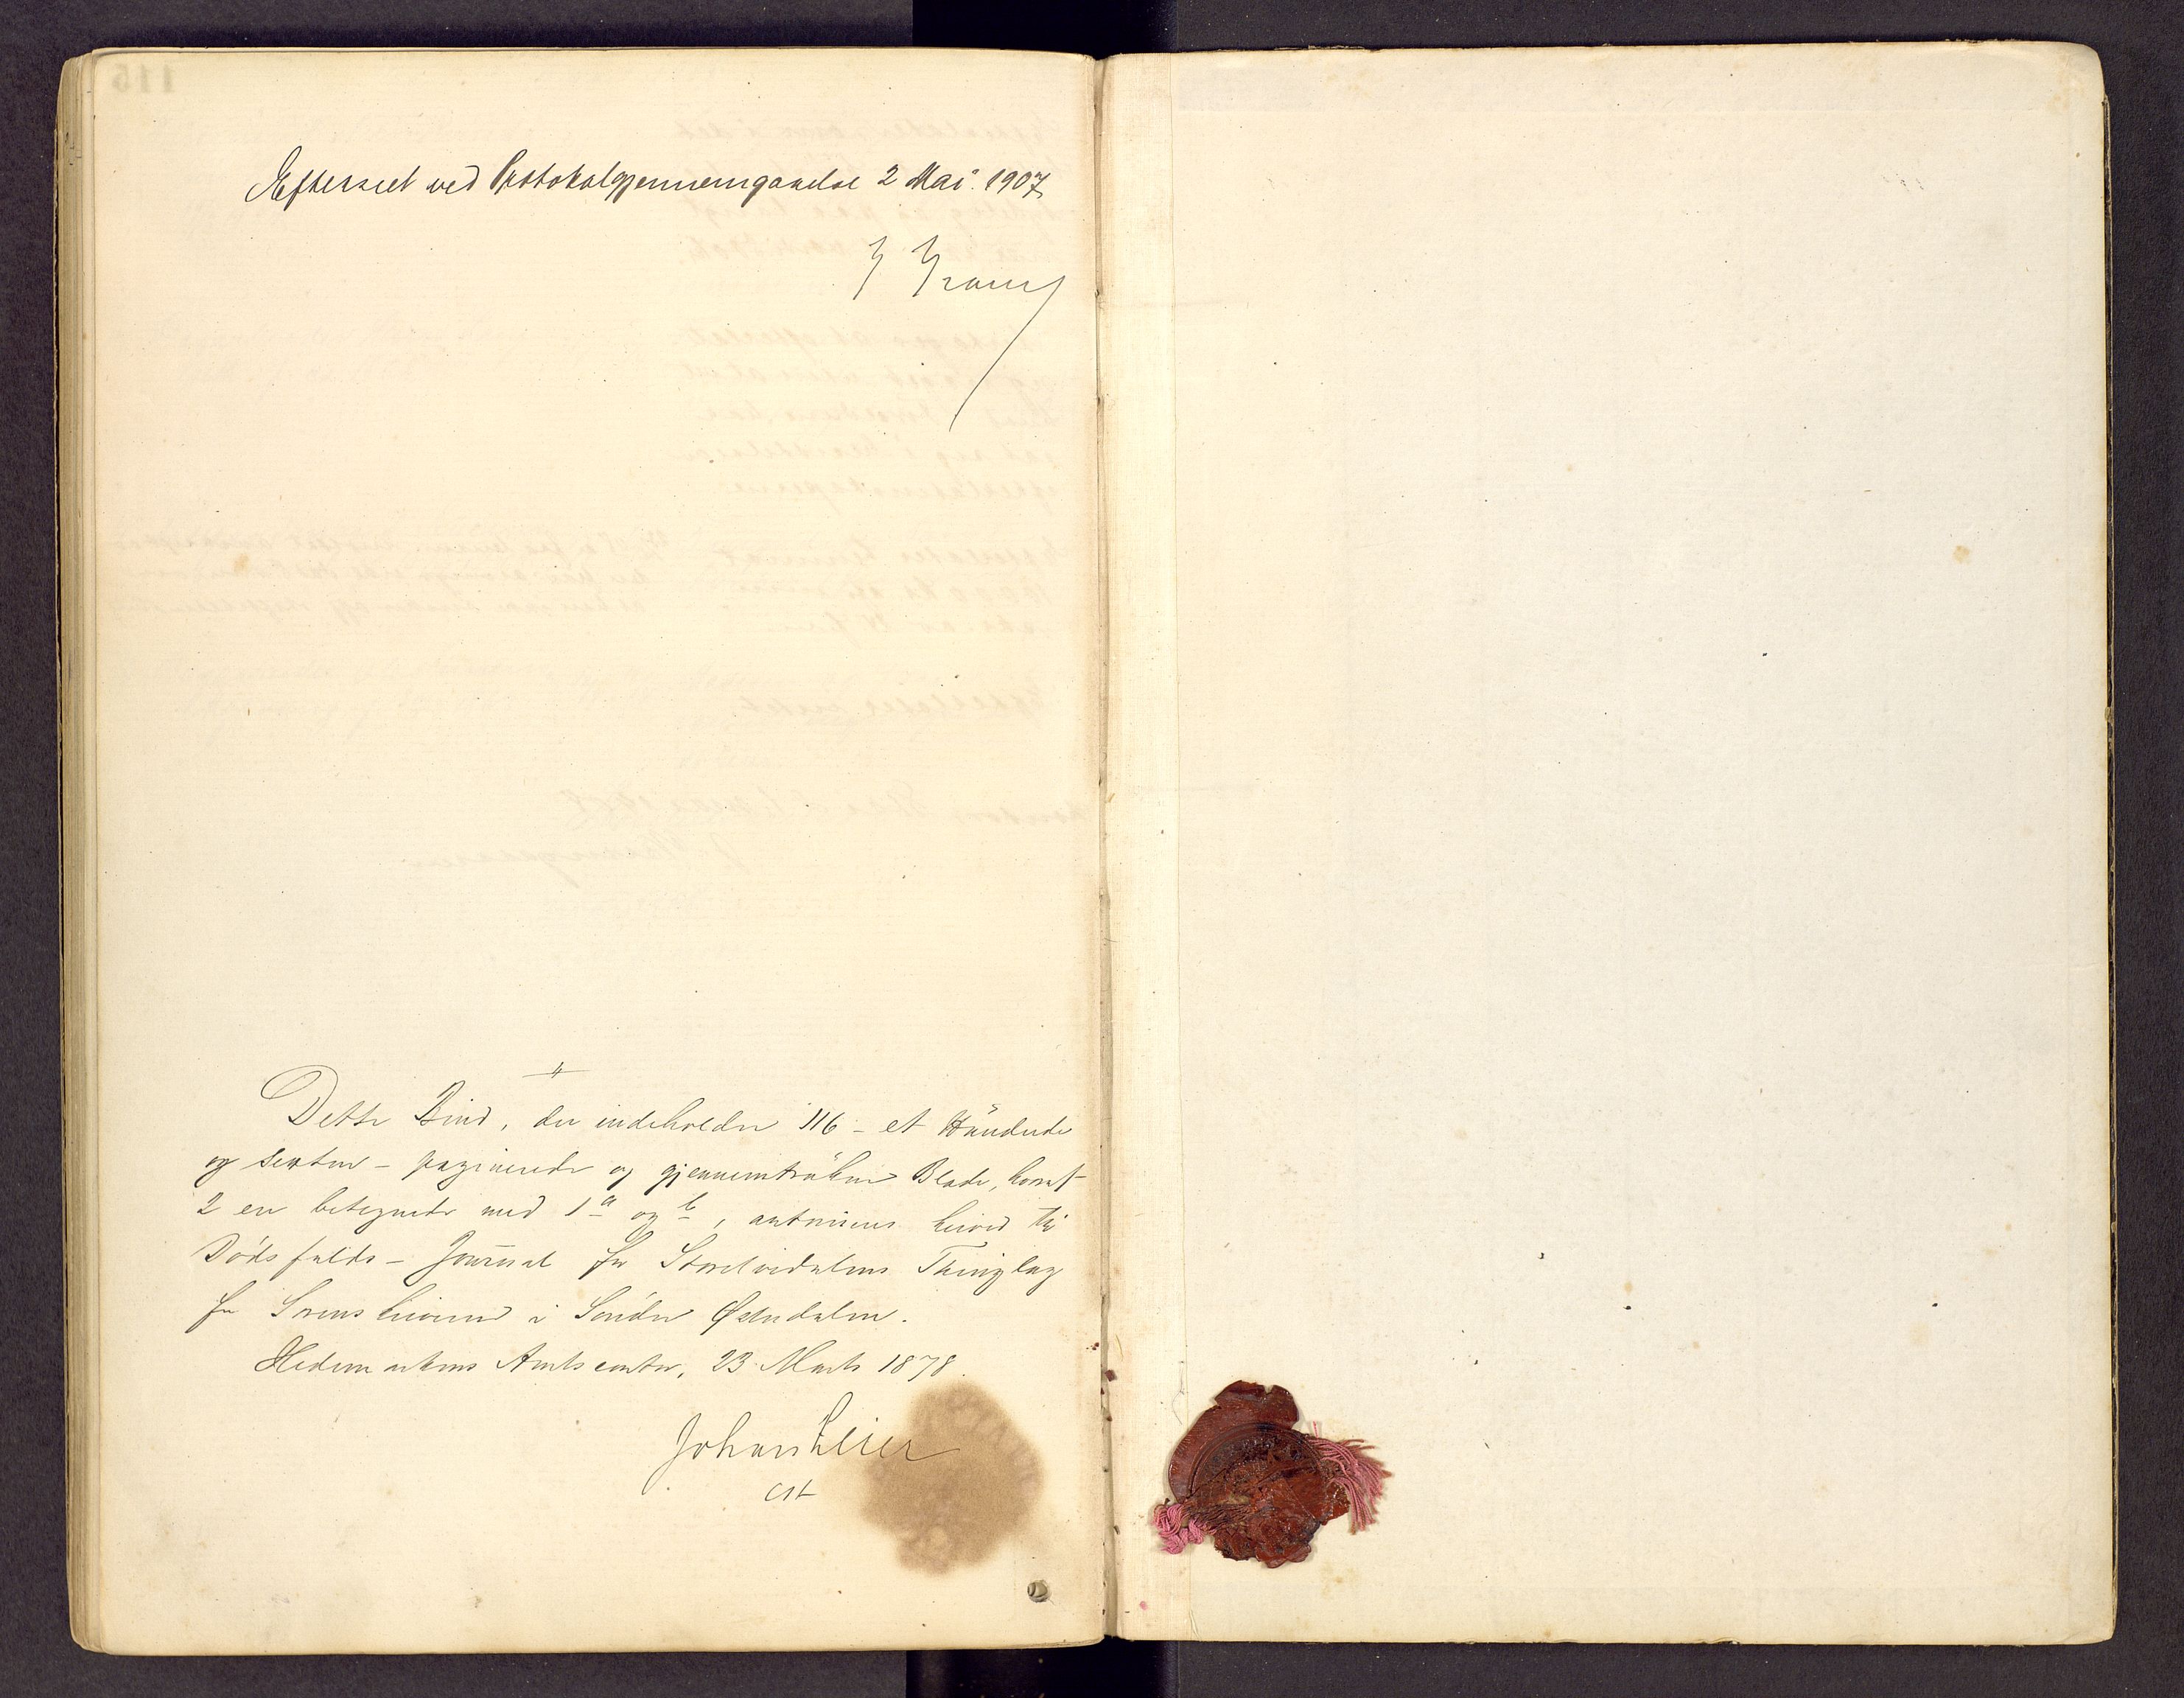 Efterseet ved Protokolgjennemgaaelse 2 Mai 1907
Dette Bind, der indeholder 116 - et Hundrede
og sexten - paginerede og gjennemtrukne Blade, hvoraf
2 ere betegnede med 1a og b, autoriseres herved til
Dödsfalds-Journal for Storelvedalens Thinglag
for Sorenskriveren i Söndre Østerdalen.
Hedemarkens Amtscontor, 23 Marts 1878.
cst